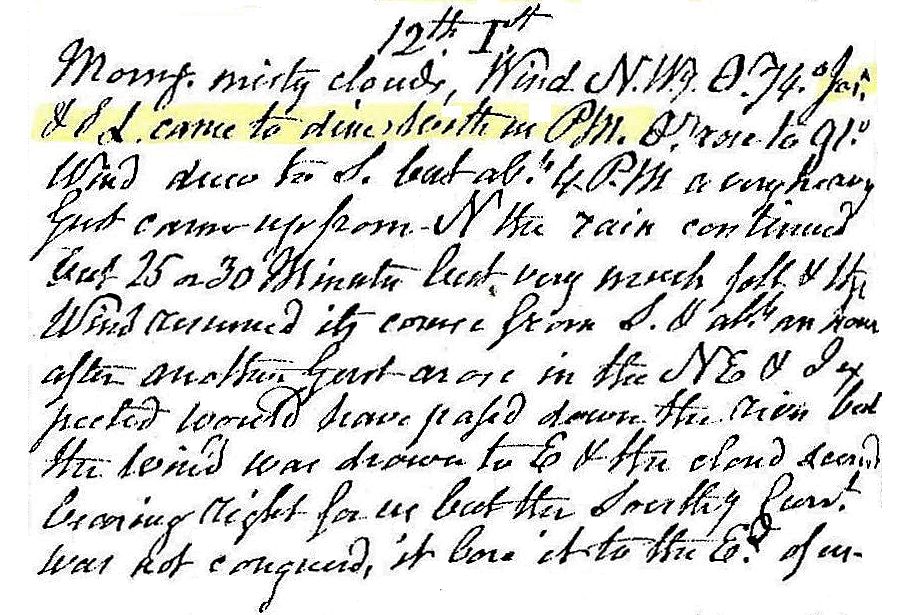 12th. Ist
Morng. misty clouds, Wind N.Wy. Ther. 74.° Jas.
& S L. came to dine with us PM. Ther. rose to 91.°
Wind due to S. but abt. 4 P.M a very heavy
Gust came up from N the rain continued
but 25 or 30 Minute but very much fell & the
Wind resumed its course from S. & abt. an hour
after another Gust arose in the NE & I ex
pected would have pased down the river but
the Wind was drawn to E & the cloud seemd
bearing right for us but the Southy Curt.
was not conquerd, it bore it to the Ed. of us-